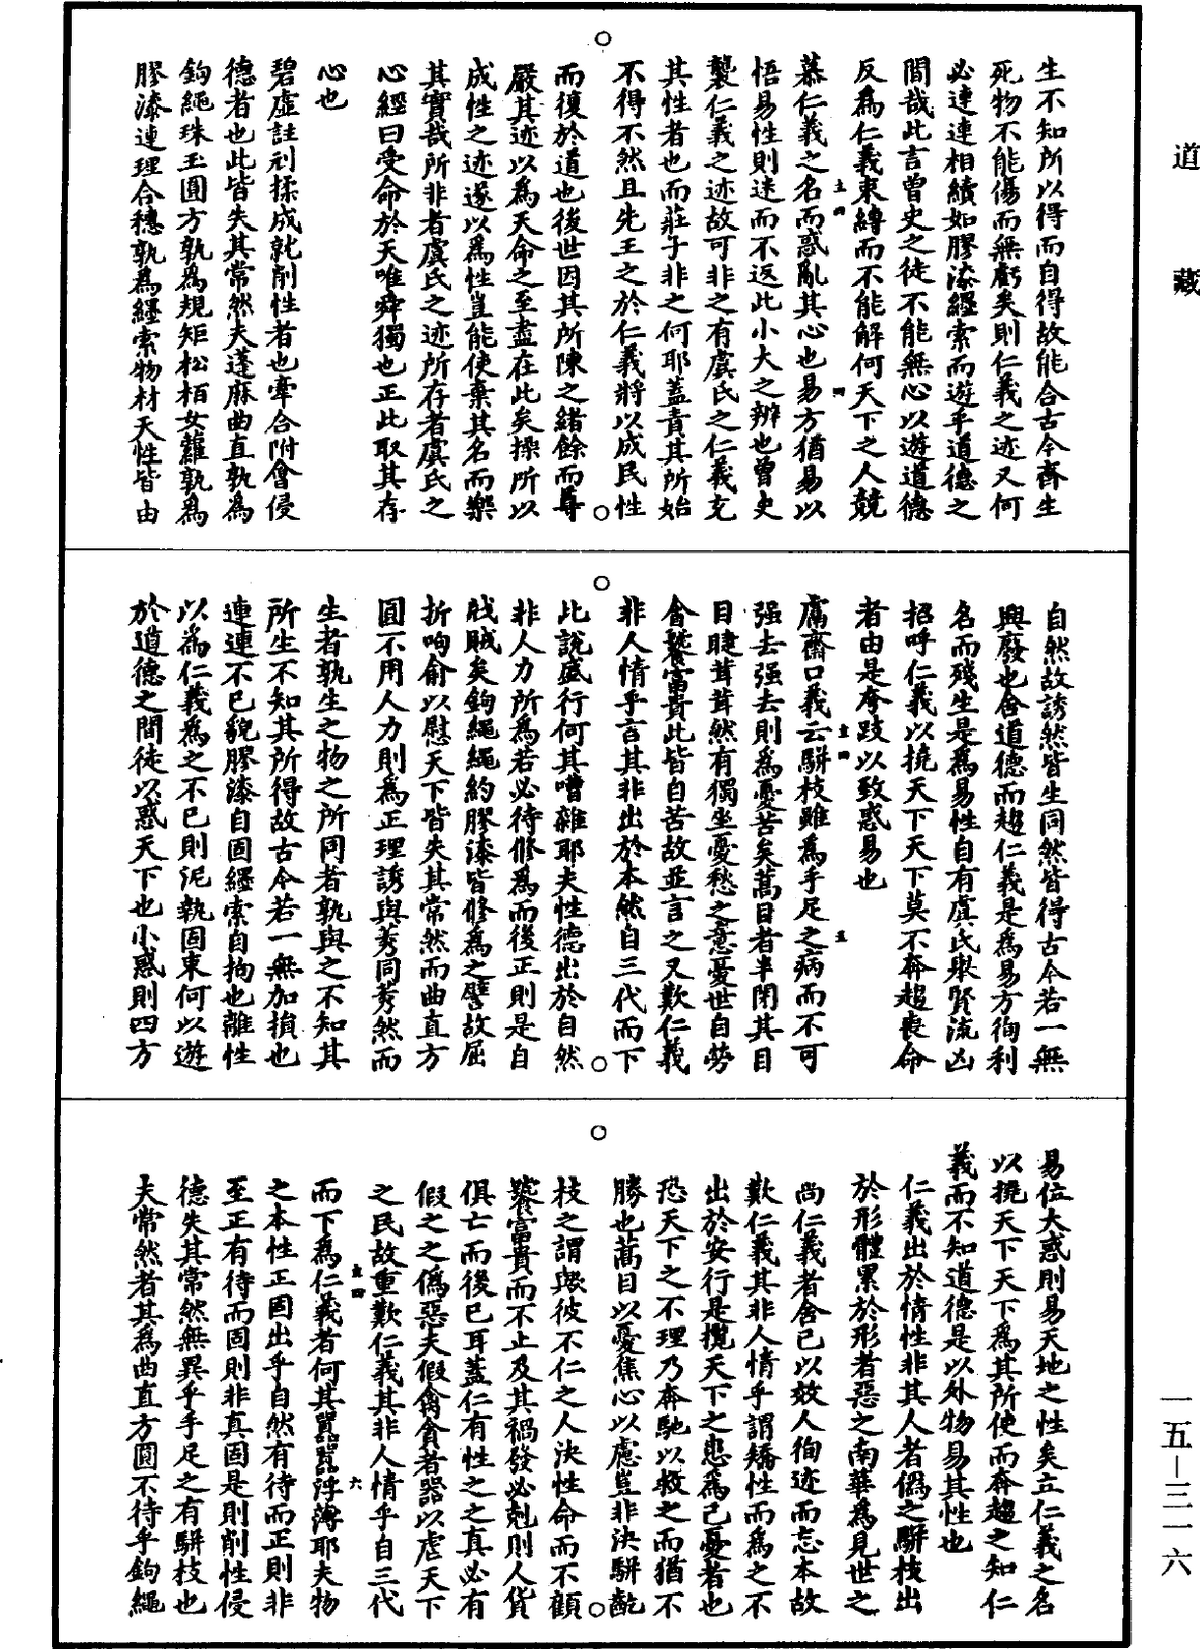 道藏
生不知所以得而自得故能合古今齊生
死物不能傷而無虧矣則仁義之迹又何
必連連相續如膠漆纆索而遊乎道德之
間哉此言曾史之徒不能無心以遊道德
反為仁義束縛而不能解何天下之人競
慕仁義之名而惑亂其心也易方猶易以
悟易性則迷而不返此小大之辨也曾史
襲仁義之迹故可非之有虞氏之仁義充
其性者也而莊子非之何耶蓋責其所始
不得不然且先王之於仁義將以成民性
而復於道也後世因其所陳之緒餘而尊
嚴其迹以為天命之至盡在此矣操所以
成性之迹遂以為性豈能使棄其名而樂
其實哉所非者虞氏之迹所存者虞氏之
心經曰受命於天唯舜獨也正此取其存
心也
碧虛註刓揉成就削性者也牽合附會侵
德者也此皆失其常然夫蓬麻曲直孰為
鉤繩珠玉圓方孰為規矩松栢女蘿孰為
膠漆連理合穗孰為纆索物材天性皆由
自然故誘然皆生同然皆得古今若一無
興廢也舍道德而趨仁義是為易方徇利
名而殘生是為易性自有虞氏舉賢流凶
招呼仁義以撓天下天下莫不奔趨喪命
者由是夸跂以致惑易也
鬳齋口義云駢枝雖為手足之病而不可
强去强去則為憂苦矣蒿目者半閉其目
目睫茸茸然有獨坐憂愁之意憂世自勞
會饕富貴此皆自苦故並言之又歎仁義
非人情乎言其非出於本然自三代而下
此說盛行何其嘈雜耶夫性德出於自然
非人力所為若必待修為而後正則是自
戕賊矣鉤繩繩約膠漆皆修為之譬故屈
折呴俞以慰天下皆失其常然而曲直方
圓不用人力則為正理誘與莠同莠然而
生者孰生之物之所同者孰與之不知其
所生不知其所得故古今若一無加損也
連連不已貌膠漆自固纆索自拘也離性
以為仁義為之不已則泥執固束何以遊
於道德之間徒以惑天下也小惑則四方
易位大惑則易天地之性矣立仁義之名
以撓天下天下為其所使而奔趨之知仁
義而不知道德是以外物易其性也
仁義出於情性非其人者偽之駢枝出
於形體累於形者惡之南華為見世之
尚仁義者舍己以效人徇迹而忘本故
歎仁義其非人情乎謂矯性而為之不
出於安行是攬天下之患為己憂者也
恐天下之不理乃奔馳以救之而猶不
勝也蒿目以憂焦心以慮豈非決駢齕
枝之謂與彼不仁之人決性命而不顧
饕富貴而不止及其禍發必剋則人貨
俱亡而後已耳蓋仁有性之之真必有
假之之偽惡夫假禽貪者器以虐天下
之民故重歎仁義其非人情乎自三代
而下為仁義者何其囂囂浮薄耶夫物
之本性正固出乎自然有待而正則非
至正有待而固則非真固是則削性侵
德失其常然無異乎手足之有駢枝也
夫常然者其為曲直方圓不待乎鉤繩
一五—三一六